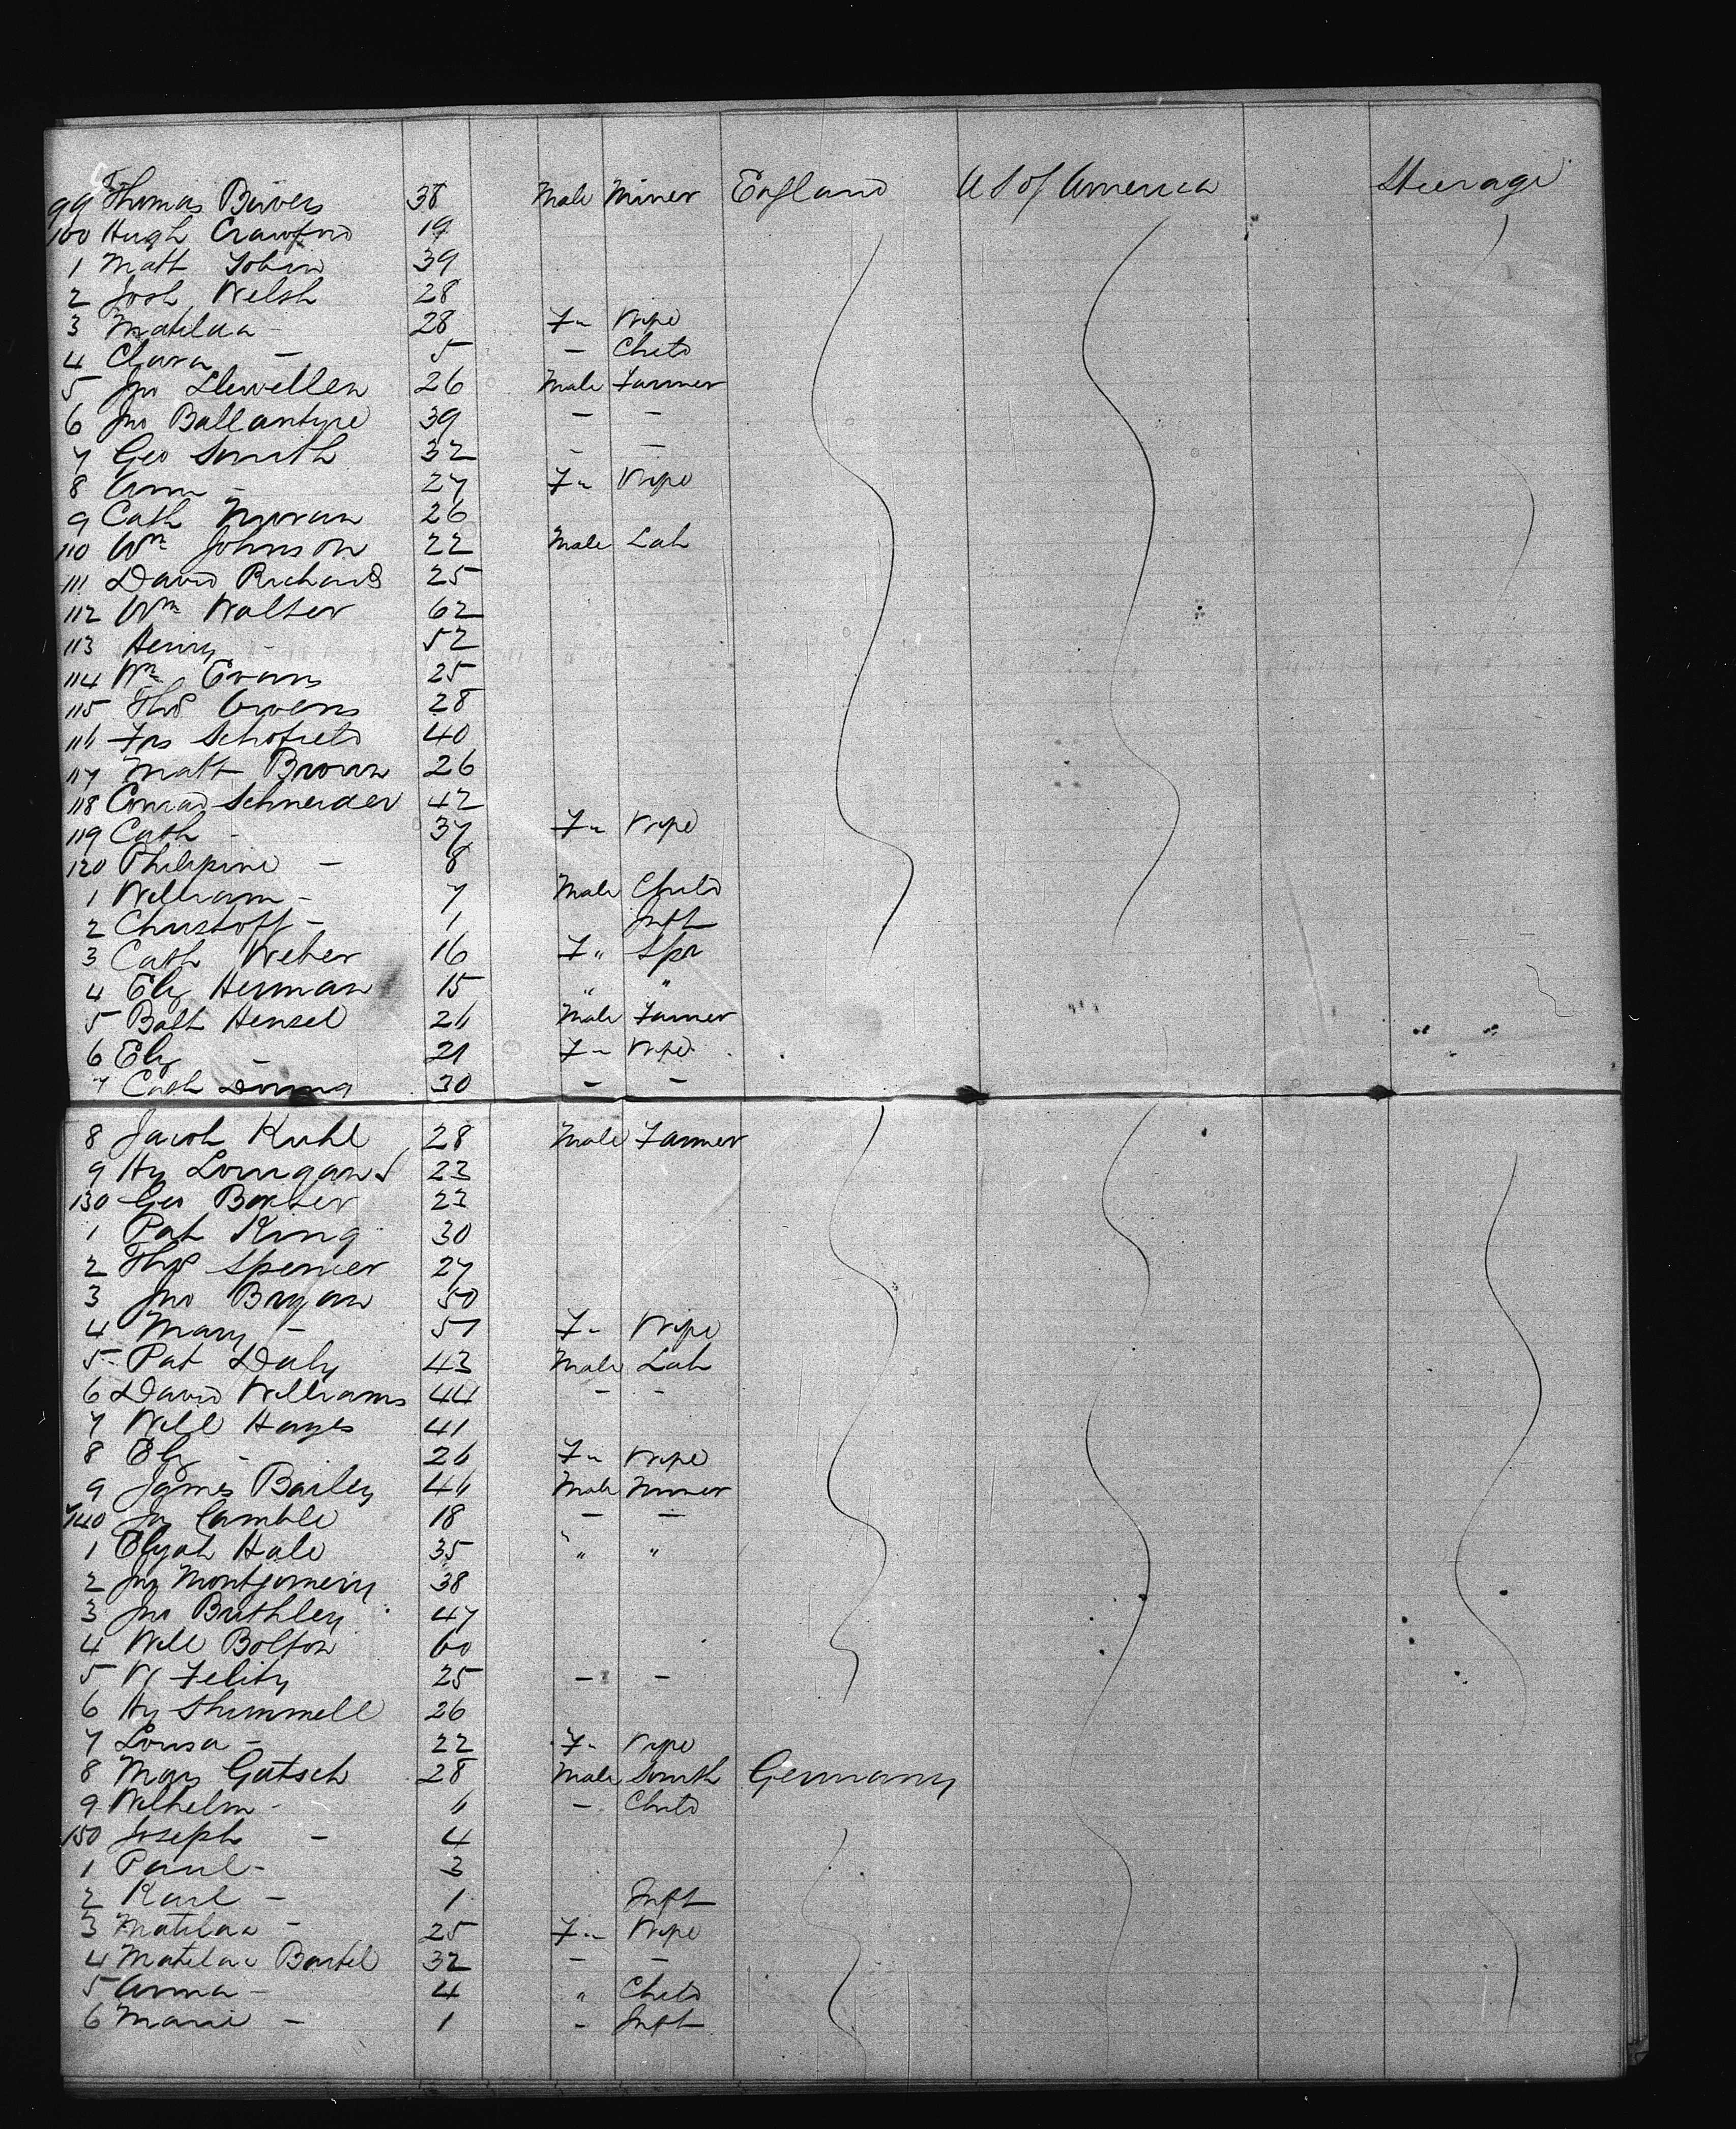 99 Thomas Bivers 38 Male Miner England U S of America Steerage
100 Hugh Crawford 19
1 Matt Tobin 39
2 Josh Welsh 28
3 Matilda - 28 F " Wife
4 Clara - 5 - Child
5 Jno Llewellen 26 Male Farmer
6 Jno Ballantyre 39 - -
7 Geo Smith 32 - -
8 Ann - 27 F " Wife
9 Cath Moran 26
110 Wm Johnson 22 Male Lab
111 David Richards 25
112 Wm Walter 62
113 Henry - 52
114 Wm Evans 25
115 Thos Owens 28
116 Jas Schofield 40
117 Matt Brown 26
118 Conrad Schneider 42
119 Cath - 37 F " Wife
120 Philipine - 8
1 William - 7 Male Child
2 Christoff - 1 Inft
3 Cath Weber 16 F " Spr
4 Elz Herman 15 " "
5 Balt Hensel 26 Male Farmer
6 Elz - 21 F " Wife
7 Cath 30 - -
8 Jacob Kuhl 28 Male Farmer
9 Hy 23
130 Geo Baxter 23
1 Pat King 30
2 Thos Spencer 27
3 Jno Bryan 50
4 Mary - 51 F " Wife
5 Pat Daly 43 Male Lab
6 David Williams 44 - -
7 Will Hayes 41
8 Elz - 26 F " Wife
9 James Bailey 46 Male Miner
140 Camble 18 - -
1 Elijah Hale 35 " "
2 Montgomery 38
3 Jno Buthley 47
4 Will Bolton 60
5 W Felity 25 - -
6 Hy Shimmell 26
7 Lousa - 22 F " Wife
8 Gatsch 28 Male Smith Germany
9 Wilhelm - 6 - Child
150 Joseph - 4
1 Paul - 3
2 Karl - 1 Inft
3 Matilda - 25 F " Wife
4 Matilda Bartel 32 - -
5 Anna - 4 " Child
6 Marie - 1 - Inft